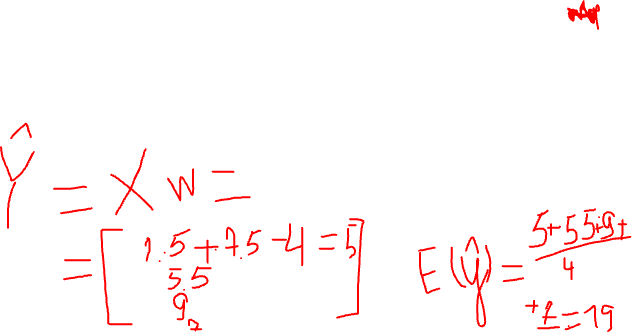 Ŷ = X W =
= [ 1.5 + 7.5 - 4 = 5 ]
5.5
9
7
E(ŷ) = 5+5.5+9+
4
+1 = 19